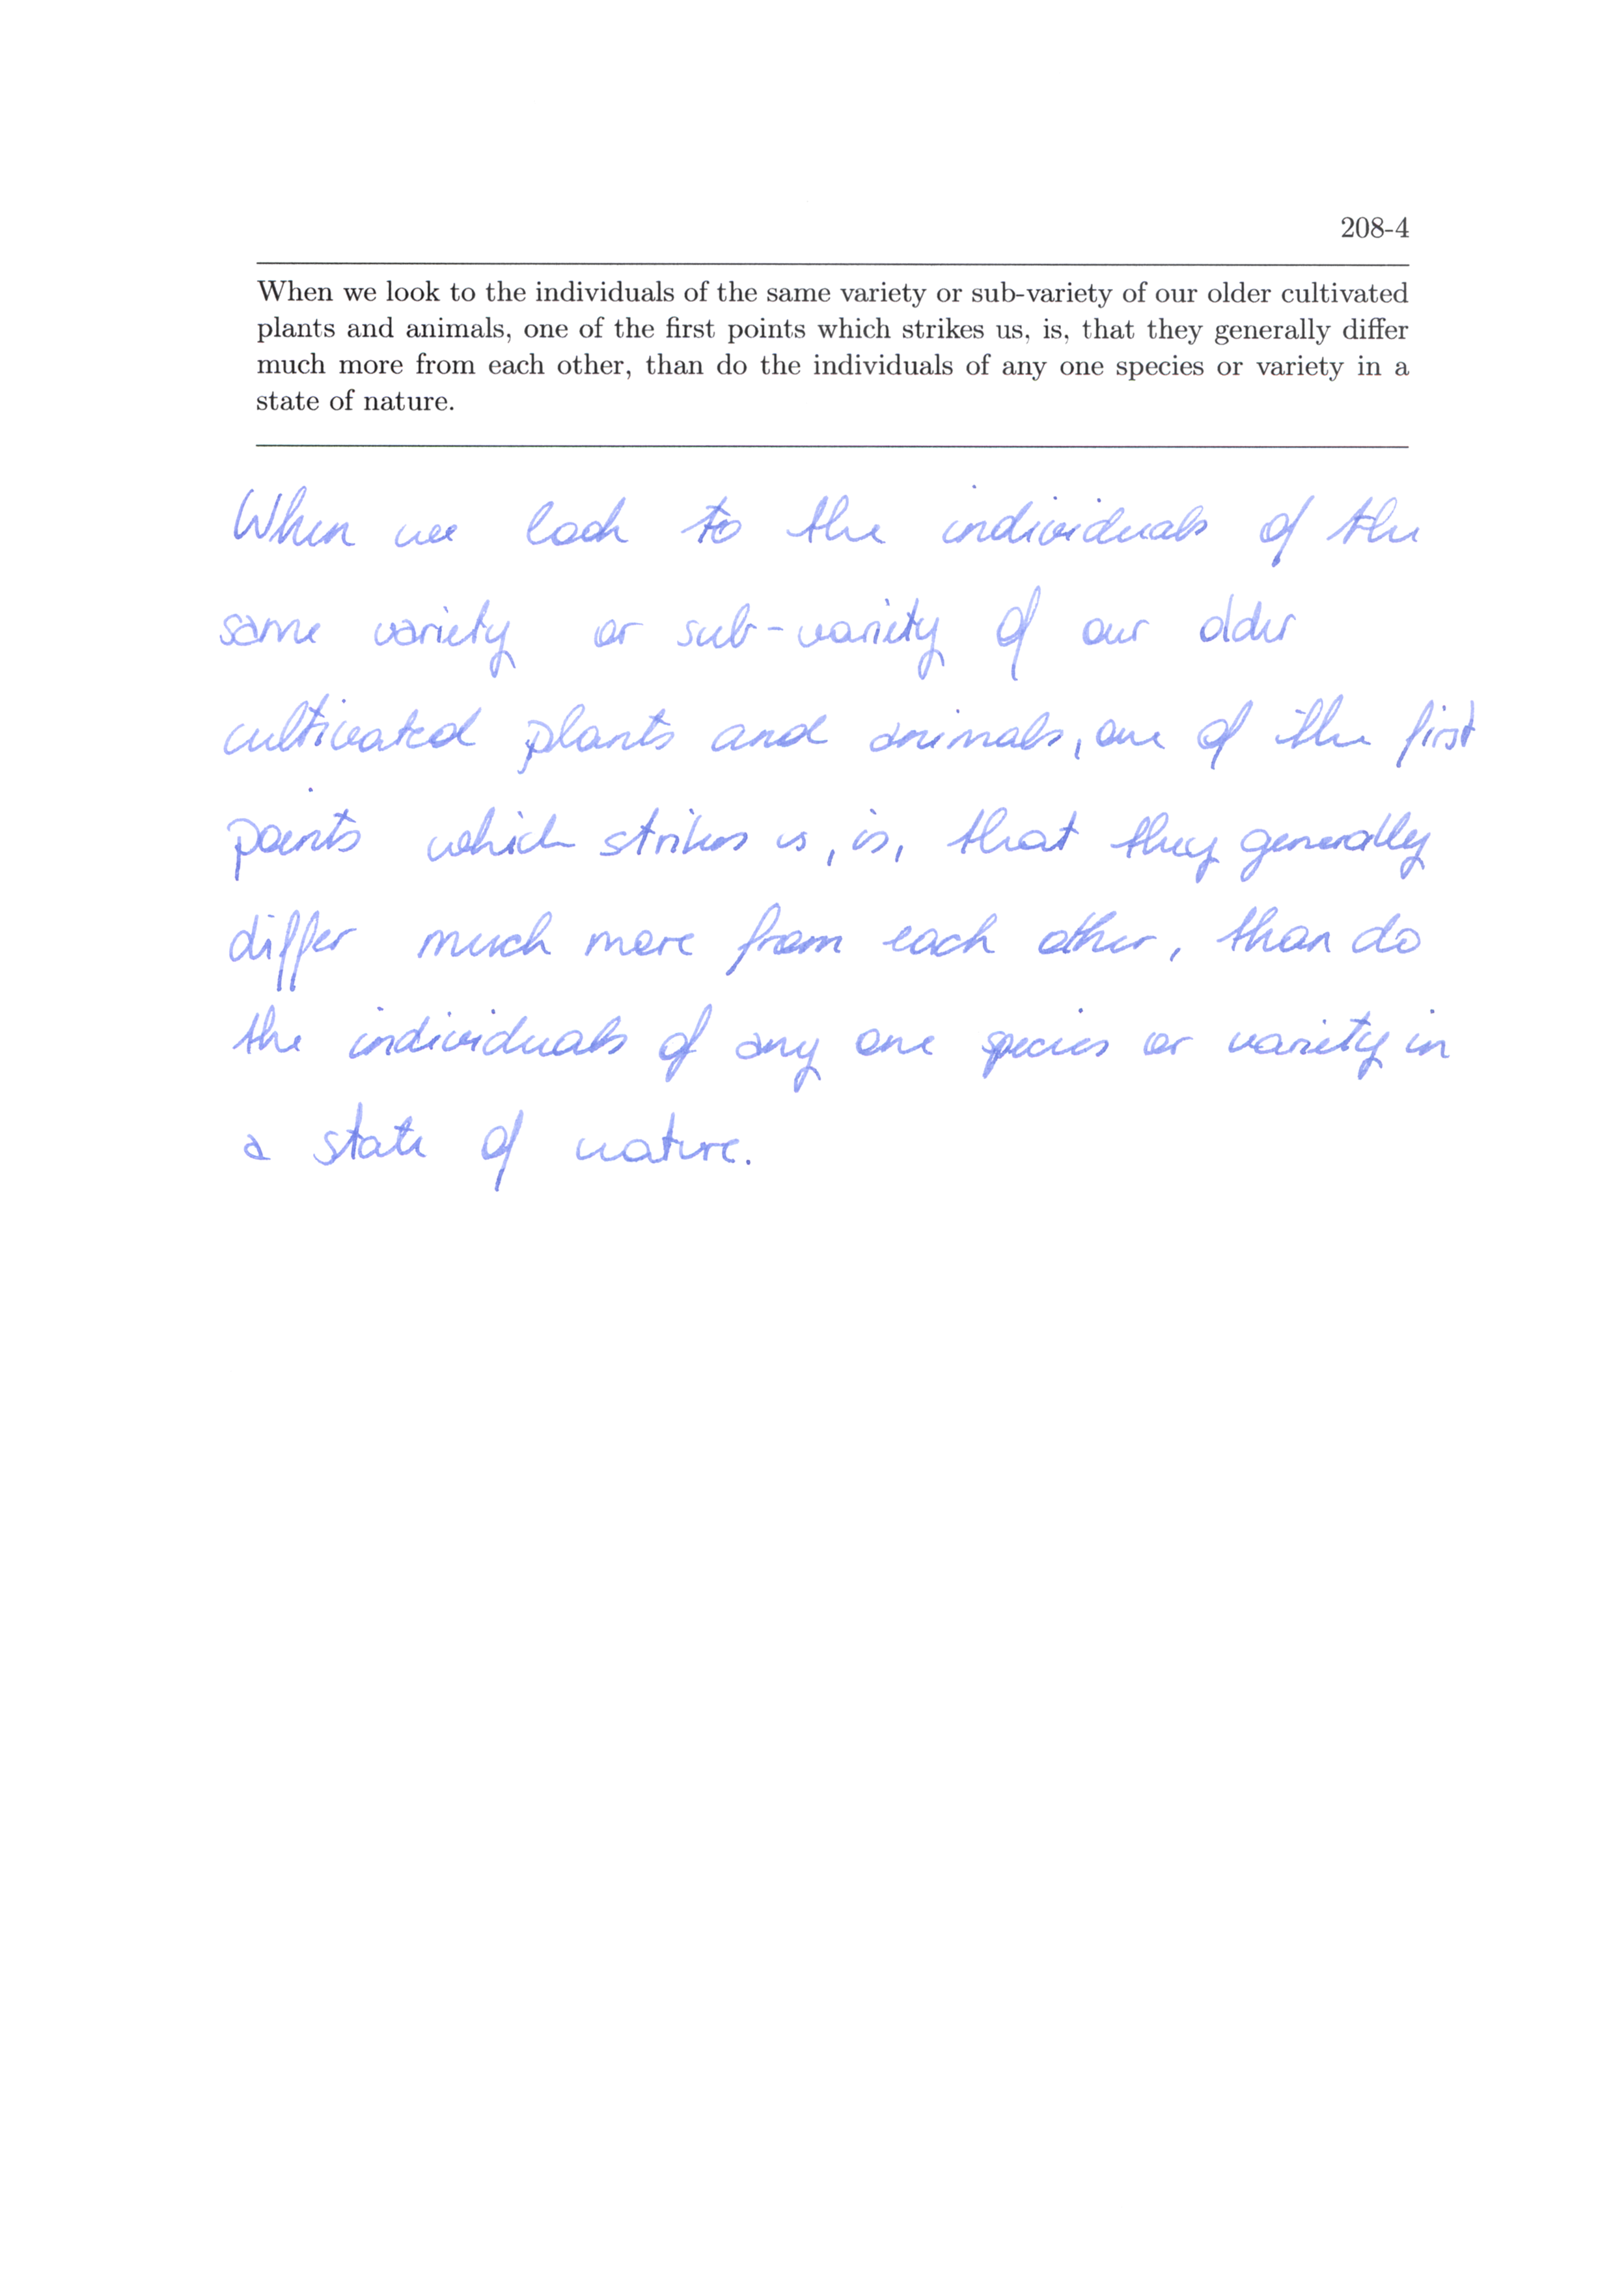 208-4
When we look to the individuals of the same variety or sub-variety of our older cultivated
plants and animals, one of the first points which strikes us, is, that they generally differ
much more from each other, than do the individuals of any one species or variety in a
state of nature.
When we look to the individuals of the
same variety or sub-variety of our older
cultivated plants and animals, one of the first
points which strikes us, is, that they generally
differ much more from each other, than do
the individuals of any one species or variety in
a state of nature.